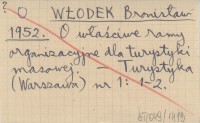 ?
O WŁODEK Bronisław
1952. O właściwe ramy
organizacyjne dla turystyki
masowej. - Turystyka
(Warszawa) nr 1: 1-2.